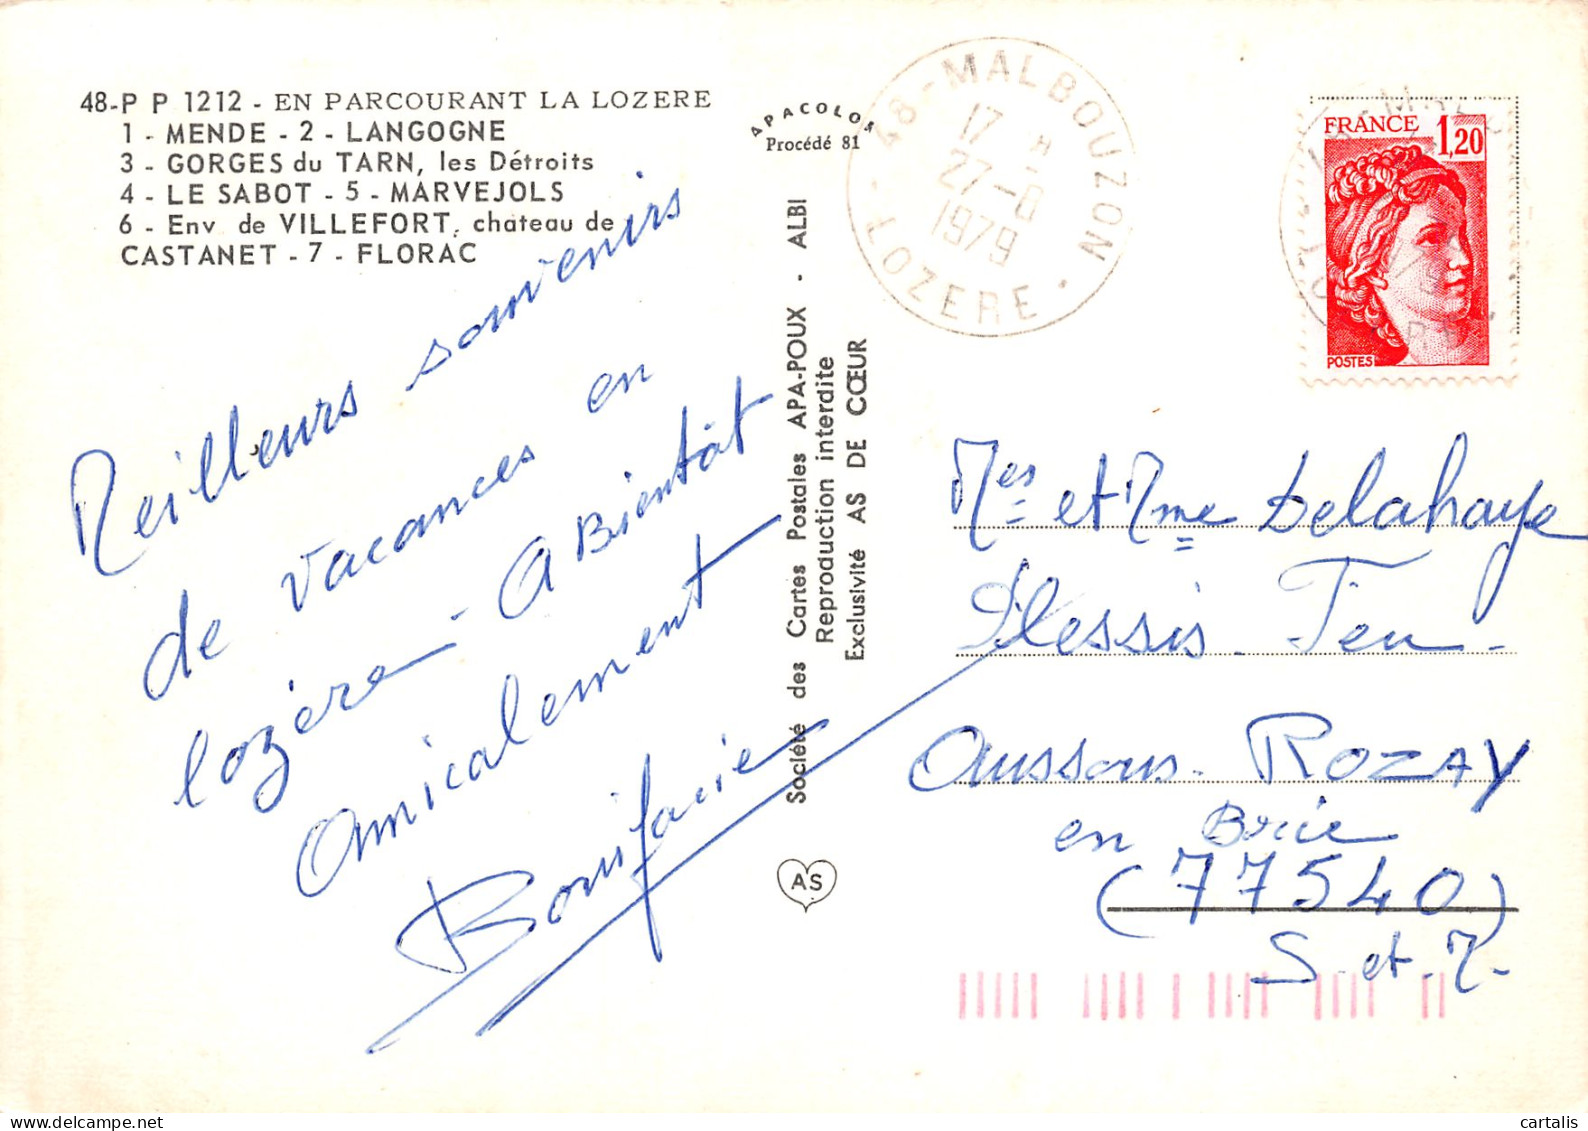 48-P P 1212 - EN PARCOURANT LA LOZERE
1 - MENDE - 2 - LANGOGNE
3 - GORGES du TARN, les Détroits
4 - LE SABOT - 5 - MARVEJOLS
6 - Env de VILLEFORT, chateau de
CASTANET - 7 - FLORAC
Meilleurs souvenirs
de vacances en
lozère - A Bientôt
Amicalement
Bonifacie
APACOLOR
Procédé 81
Société des Cartes Postales APA-POUX - ALBI
Reproduction interdite
Exclusivité AS DE CŒUR
AS
48-MALBOUZON
17 H
27-8
1979
LOZERE
FRANCE 1,20
POSTES
Mes et Mme Delahaye
Plessis - Feu -
Aussous - ROZAY
en Brie
(77540)
S - et - M -
cartalis